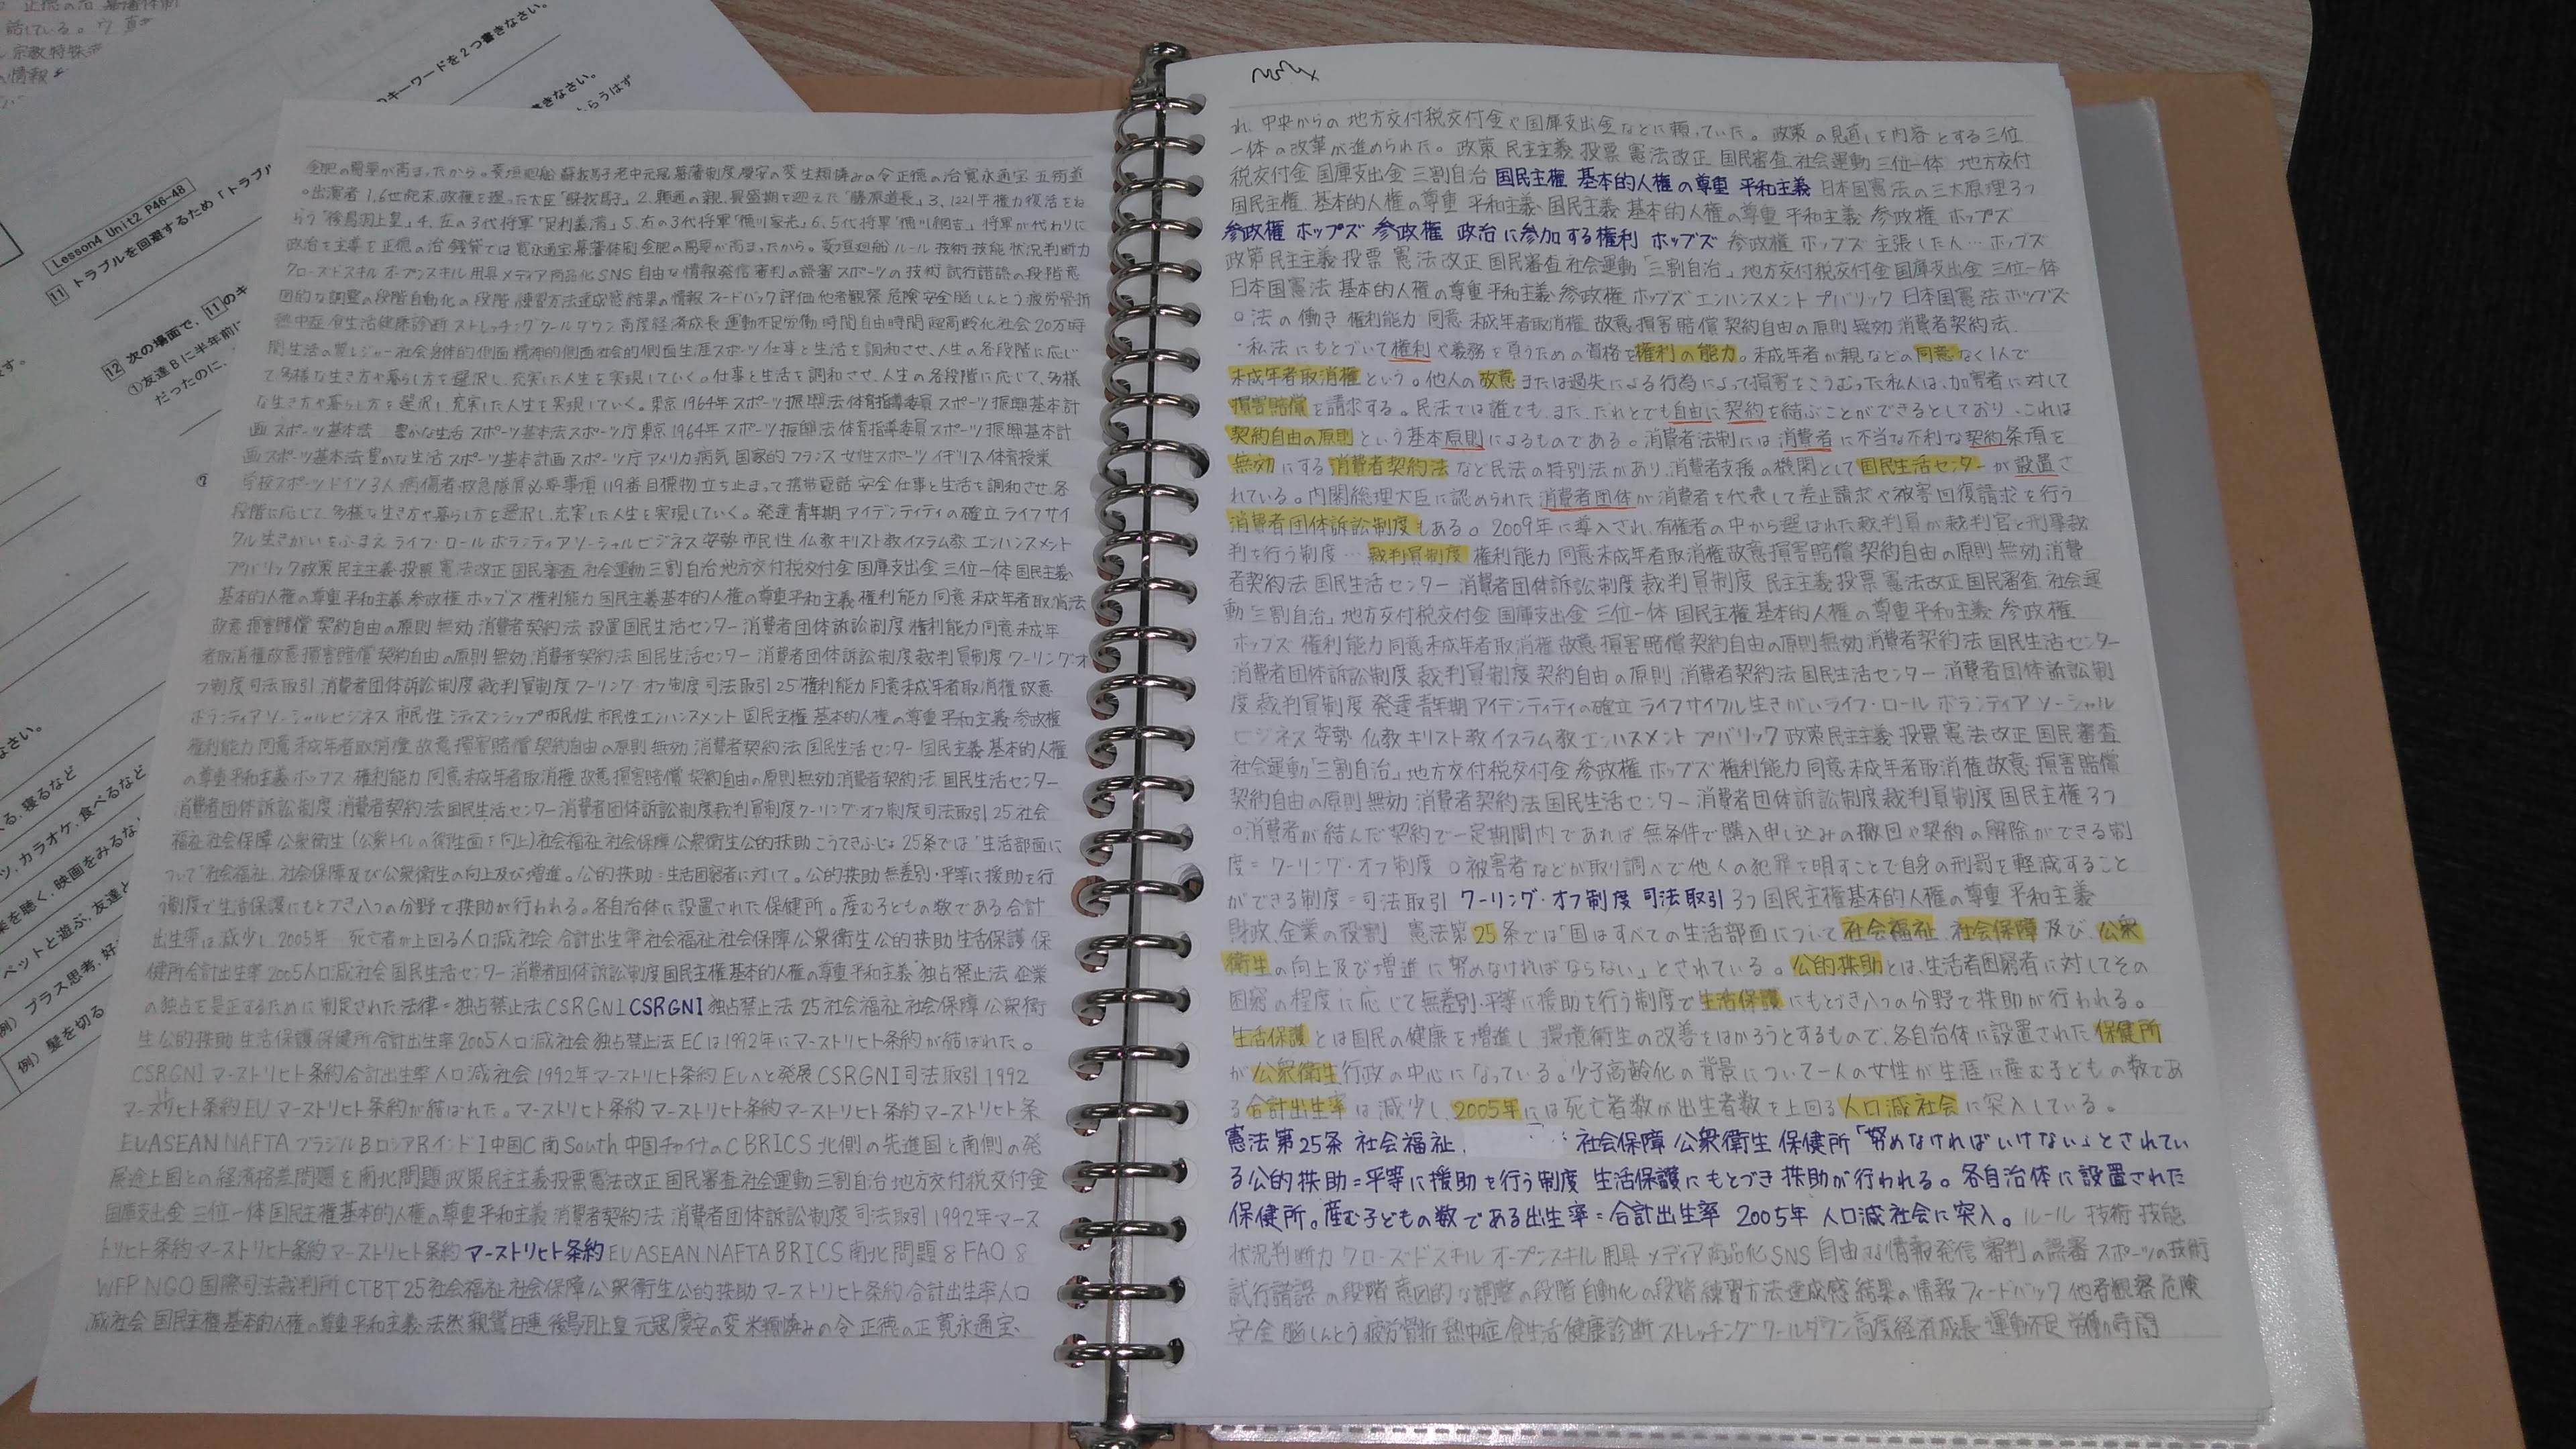 Lesson4 Unit2 P46-48
11 トラブルを回避するため「トラブ
12 次の場面で、11のキ
①友達Bに半年前
だったのに、
のキーワードを2つ書きなさい。
きなさい。
らうはず
なさい。
る、寝るなど
ツ、カラオケ、食べるなど
楽を聴く、映画をみるな
ペットと遊ぶ、友達と
例）プラス思考、好
例）髪を切る
金肥の需要が高まったから。菱垣廻船 蘇我馬子老中元寇幕藩制度慶安の変生類憐みの令正徳の治寛永通宝 五街道
政治を主導を正徳の治 銭貨では寛永通宝幕藩体制金肥の需要が高まったから。菱垣廻船 ルール 技術 技能 状況判断力
クローズドスキル オープンスキル 用具 メディア商品化SNS自由な情報発信審判の誤審スポーツの技術試行錯誤の段階意
図的な調整の段階自動化の段階 練習方法達成感結果の情報フィードバック評価他者観察危険安全脳しんとう疲労骨折
熱中症食生活健康診断ストレッチングクールダウン高度経済成長運動不足労働時間自由時間超高齢化社会20万時
間生活の質レジャー社会身体的側面精神的側面社会的側面生涯スポーツ仕事と生活を調和させ、人生の各段階に応じ
て多様な生き方や暮らし方を選択し、充実した人生を実現していく。仕事と生活を調和させ、人生の各段階に応じて、多様
な生き方や暮らし方を選択し、充実した人生を実現していく。東京1964年スポーツ振興法体育指導委員スポーツ振興基本計
画 スポーツ基本法 豊かな生活 スポーツ基本法スポーツ庁東京1964年 スポーツ振興法体育指導委員スポーツ振興基本計
画スポーツ基本法豊かな生活 スポーツ基本計画スポーツ庁アメリカ病気 国家的 フランス 女性スポーツ イギリス体育授業
学校スポーツ ドイツ3人 病傷者救急隊員必要事項119番目標物立ち止まって携帯電話 安全 仕事と生活を調和させ、各
段階に応じて、多様な生き方や暮らし方を選択し、充実した人生を実現していく。発達青年期 アイデンティティの確立ライフサイ
クル生きがいをふまえ ライフ・ロール ボランティアソーシャルビジネス 姿勢市民性 仏教キリスト教イスラム教 エンハンスメント
プバリック政策民主主義投票憲法改正国民審査社会運動三割自治地方交付税交付金国庫支出金三位一体国民主義
基本的人権の尊重平和主義参政権ホッブズ権利能力国民主義基本的人権の尊重平和主義権利能力同意未成年者取消法
故意損害賠償 契約自由の原則 無効 消費者契約法 設置国民生活センター消費者団体訴訟制度権利能力同意未成年
者取消権故意損害賠償契約自由の原則無効消費者契約法国民生活センター消費者団体訴訟制度裁判員制度クーリング・オ
フ制度司法取引 消費者団体訴訟制度裁判員制度クーリング・オフ制度司法取引25権利能力同意未成年者取消権故意
ボランティアソーシャルビジネス 市民性シティズンシップ市民性 市民性エンハンスメント国民主権基本的人権の尊重平和主義参政権
権利能力同意未成年者取消権 故意損害賠償契約自由の原則無効消費者契約法国民生活センター国民主義基本的人権
の尊重平和主義ホッブズ 権利能力同意未成年者取消権 故意損害賠償 契約自由の原則無効消費者契約法国民生活センター
消費者団体訴訟制度消費者契約法国民生活センター消費者団体訴訟制度裁判員制度クーリング・オフ制度司法取引25社会
福祉社会保障公衆衛生（公衆トイレの衛生面を向上）社会福祉社会保障公衆衛生公的扶助こうてきふじょ25条では「生活部面に
ついて社会福祉、社会保障及び公衆衛生の向上及び増進。公的扶助＝生活困窮者に対して。公的扶助無差別・平等に援助を行
う制度で生活保護にもとづき八つの分野で扶助が行われる。各自治体に設置された保健所。産む子どもの数である合計
出生率は減少し、2005年 死亡者が上回る人口減社会 合計出生率社会福祉社会保障公衆衛生公的扶助生活保護保
健所合計出生率2005人口減社会国民生活センター消費者団体訴訟制度国民主権基本的人権の尊重平和主義 独占禁止法 企業
の独占を是正するために制定された法律＝独占禁止法CSRGNICSRGNI独占禁止法25社会福祉社会保障公衆衛
生公的扶助生活保護保健所合計出生率2005人口減社会独占禁止法ECは1992年にマーストリヒト条約が結ばれた。
CSRGNI マーストリヒト条約合計出生率人口減社会1992年マーストリヒト条約EUへと発展CSRGNI司法取引1992
マーストリヒト条約EUマーストリヒト条約が結ばれた。マーストリヒト条約マーストリヒト条約マーストリヒト条約マーストリヒト条
EUASEANNAFTAブラジルBロシアRインドI中国C南South中国チャイナのCBRICS北側の先進国と南側の発
展途上国との経済格差問題を南北問題政策民主主義投票憲法改正国民審査社会運動三割自治地方交付税交付金
国庫支出金三位一体国民主権基本的人権の尊重平和主義消費者契約法 消費者団体訴訟制度司法取引1992年マース
トリヒト条約マーストリヒト条約マーストリヒト条約マーストリヒト条約EUASEANNAFTABRICS南北問題8FAO8
WFPNGO国際司法裁判所CTBT25社会福祉社会保障公衆衛生公的扶助マーストリヒト条約合計出生率人口
減社会国民主権基本的人権の尊重平和主義法然親鸞日連後鳥羽上皇元寇慶安の変生類憐みの令正徳の正寛永通宝
れ、中央からの 地方交付税交付金や国庫支出金などに頼っていた。政策の見直しを内容とする三位
一体の改革が進められた。政策民主主義投票憲法改正 国民審査社会運動三位一体 地方交付
税交付金国庫支出金三割自治 国民主権 基本的人権の尊重 平和主義 日本国憲法の三大原理3つ
国民主権 基本的人権の尊重 平和主義 国民主義 基本的人権の尊重 平和主義 参政権 ホップズ
参政権 ホップズ 参政権 政治に参加する権利 ホッブズ 参政権 ホッブズ 主張した人…ホッブズ
政策民主主義投票 憲法改正国民審査社会運動「三割自治」地方交付税交付金国庫支出金三位一体
日本国憲法 基本的人権の尊重平和主義参政権ホッブズエンハンスメント プバリック 日本国憲法ホッブズ
○法の働き 権利能力 同意 未成年者取消権 故意損害賠償契約自由の原則無効消費者契約法
・私法にもとづいて権利や義務を負うための資格を権利の能力。未成年者が親などの同意なく1人で
未成年者取消権という。他人の故意または過失による行為によって損害をこうむった私人は、加害者に対して
損害賠償を請求する。民法では誰でも、また、だれとでも自由に契約を結ぶことができるとしており、これは
契約自由の原則という基本原則によるものである。消費者法制には消費者に不当な不利な契約条項を
無効にする消費者契約法など民法の特別法があり、消費者支援の機関として国民生活センターが設置さ
れている。内閣総理大臣に認められた消費者団体が消費者を代表して差止請求や被害回復請求を行う
消費者団体訴訟制度もある。2009年に導入され、有権者の中から選ばれた裁判員が裁判官と刑事裁
判を行う制度…裁判員制度 権利能力 同意未成年者取消権故意損害賠償 契約自由の原則 無効 消費
者契約法 国民生活センター 消費者団体訴訟制度裁判員制度 民主主義投票憲法改正国民審査 社会運
動三割自治」地方交付税交付金国庫支出金 三位一体 国民主権基本的人権の尊重平和主義 参政権
ホッブズ 権利能力同意未成年者取消権 故意 損害賠償契約自由の原則無効消費者契約法国民生活センター
消費者団体訴訟制度 裁判員制度 契約自由の原則 消費者契約法国民生活センター 消費者団体訴訟制
度裁判員制度 発達青年期アイデンティティの確立 ライフサイクル生きがいライフ・ロール ボランティア ソーシャル
ビジネス 姿勢 仏教キリスト教イスラム教エンハスメント プバリック政策民主主義 投票憲法改正国民審査
社会運動「三割自治」地方交付税交付金 参政権 ホッブズ 権利能力同意未成年者取消権故意 損害賠償
契約自由の原則 無効 消費者契約法国民生活センター消費者団体訴訟制度裁判員制度国民主権3つ
○消費者が結んだ契約で一定期間内であれば無条件で購入申し込みの撤回や契約の解除ができる制
度＝クーリング・オフ制度 ○被害者などが取り調べで他人の犯罪を明すことで自身の刑罰を軽減すること
ができる制度＝司法取引 クーリング・オフ制度 司法取引 3つ国民主権基本的人権の尊重 平和主義
財政、企業の役割 憲法第25条では「国はすべての生活部面について社会福祉、社会保障及び、公衆
衛生の向上及び増進に努めなければならない」とされている。公的扶助とは、生活者困窮者に対してその
困窮の程度に応じて無差別・平等に援助を行う制度で生活保護にもとづき八つの分野で扶助が行われる。
生活保護とは国民の健康を増進し、環境衛生の改善をはかろうとするもので、各自治体に設置された保健所
が公衆衛生行政の中心になっている。少子高齢化の背景について一人の女性が生涯に産む子どもの数であ
る合計出生率は減少し、2005年には死亡者数が出生者数を上回る人口減社会に突入している。
憲法第25条 社会福祉、 社会保障 公衆衛生 保健所「努めなければいけない」とされてい
る公的扶助＝平等に援助を行う制度 生活保護にもとづき扶助が行われる。各自治体に設置された
保健所。産む子どもの数である出生率＝合計出生率 2005年 人口減社会に突入。ルール 技術 技能
状況判断力 クローズドスキル オープンスキル用具 メディア商品化SNS自由な情報発信審判の誤審 スポーツの技術
試行錯誤の段階意図的な調整の段階自動化の段階練習方法達成感結果の情報フィードバック他者観察危険
安全脳しんとう疲労骨折 熱中症食生活健康診断ストレッチングクールダウン高度経済成長 運動不足 労働時間